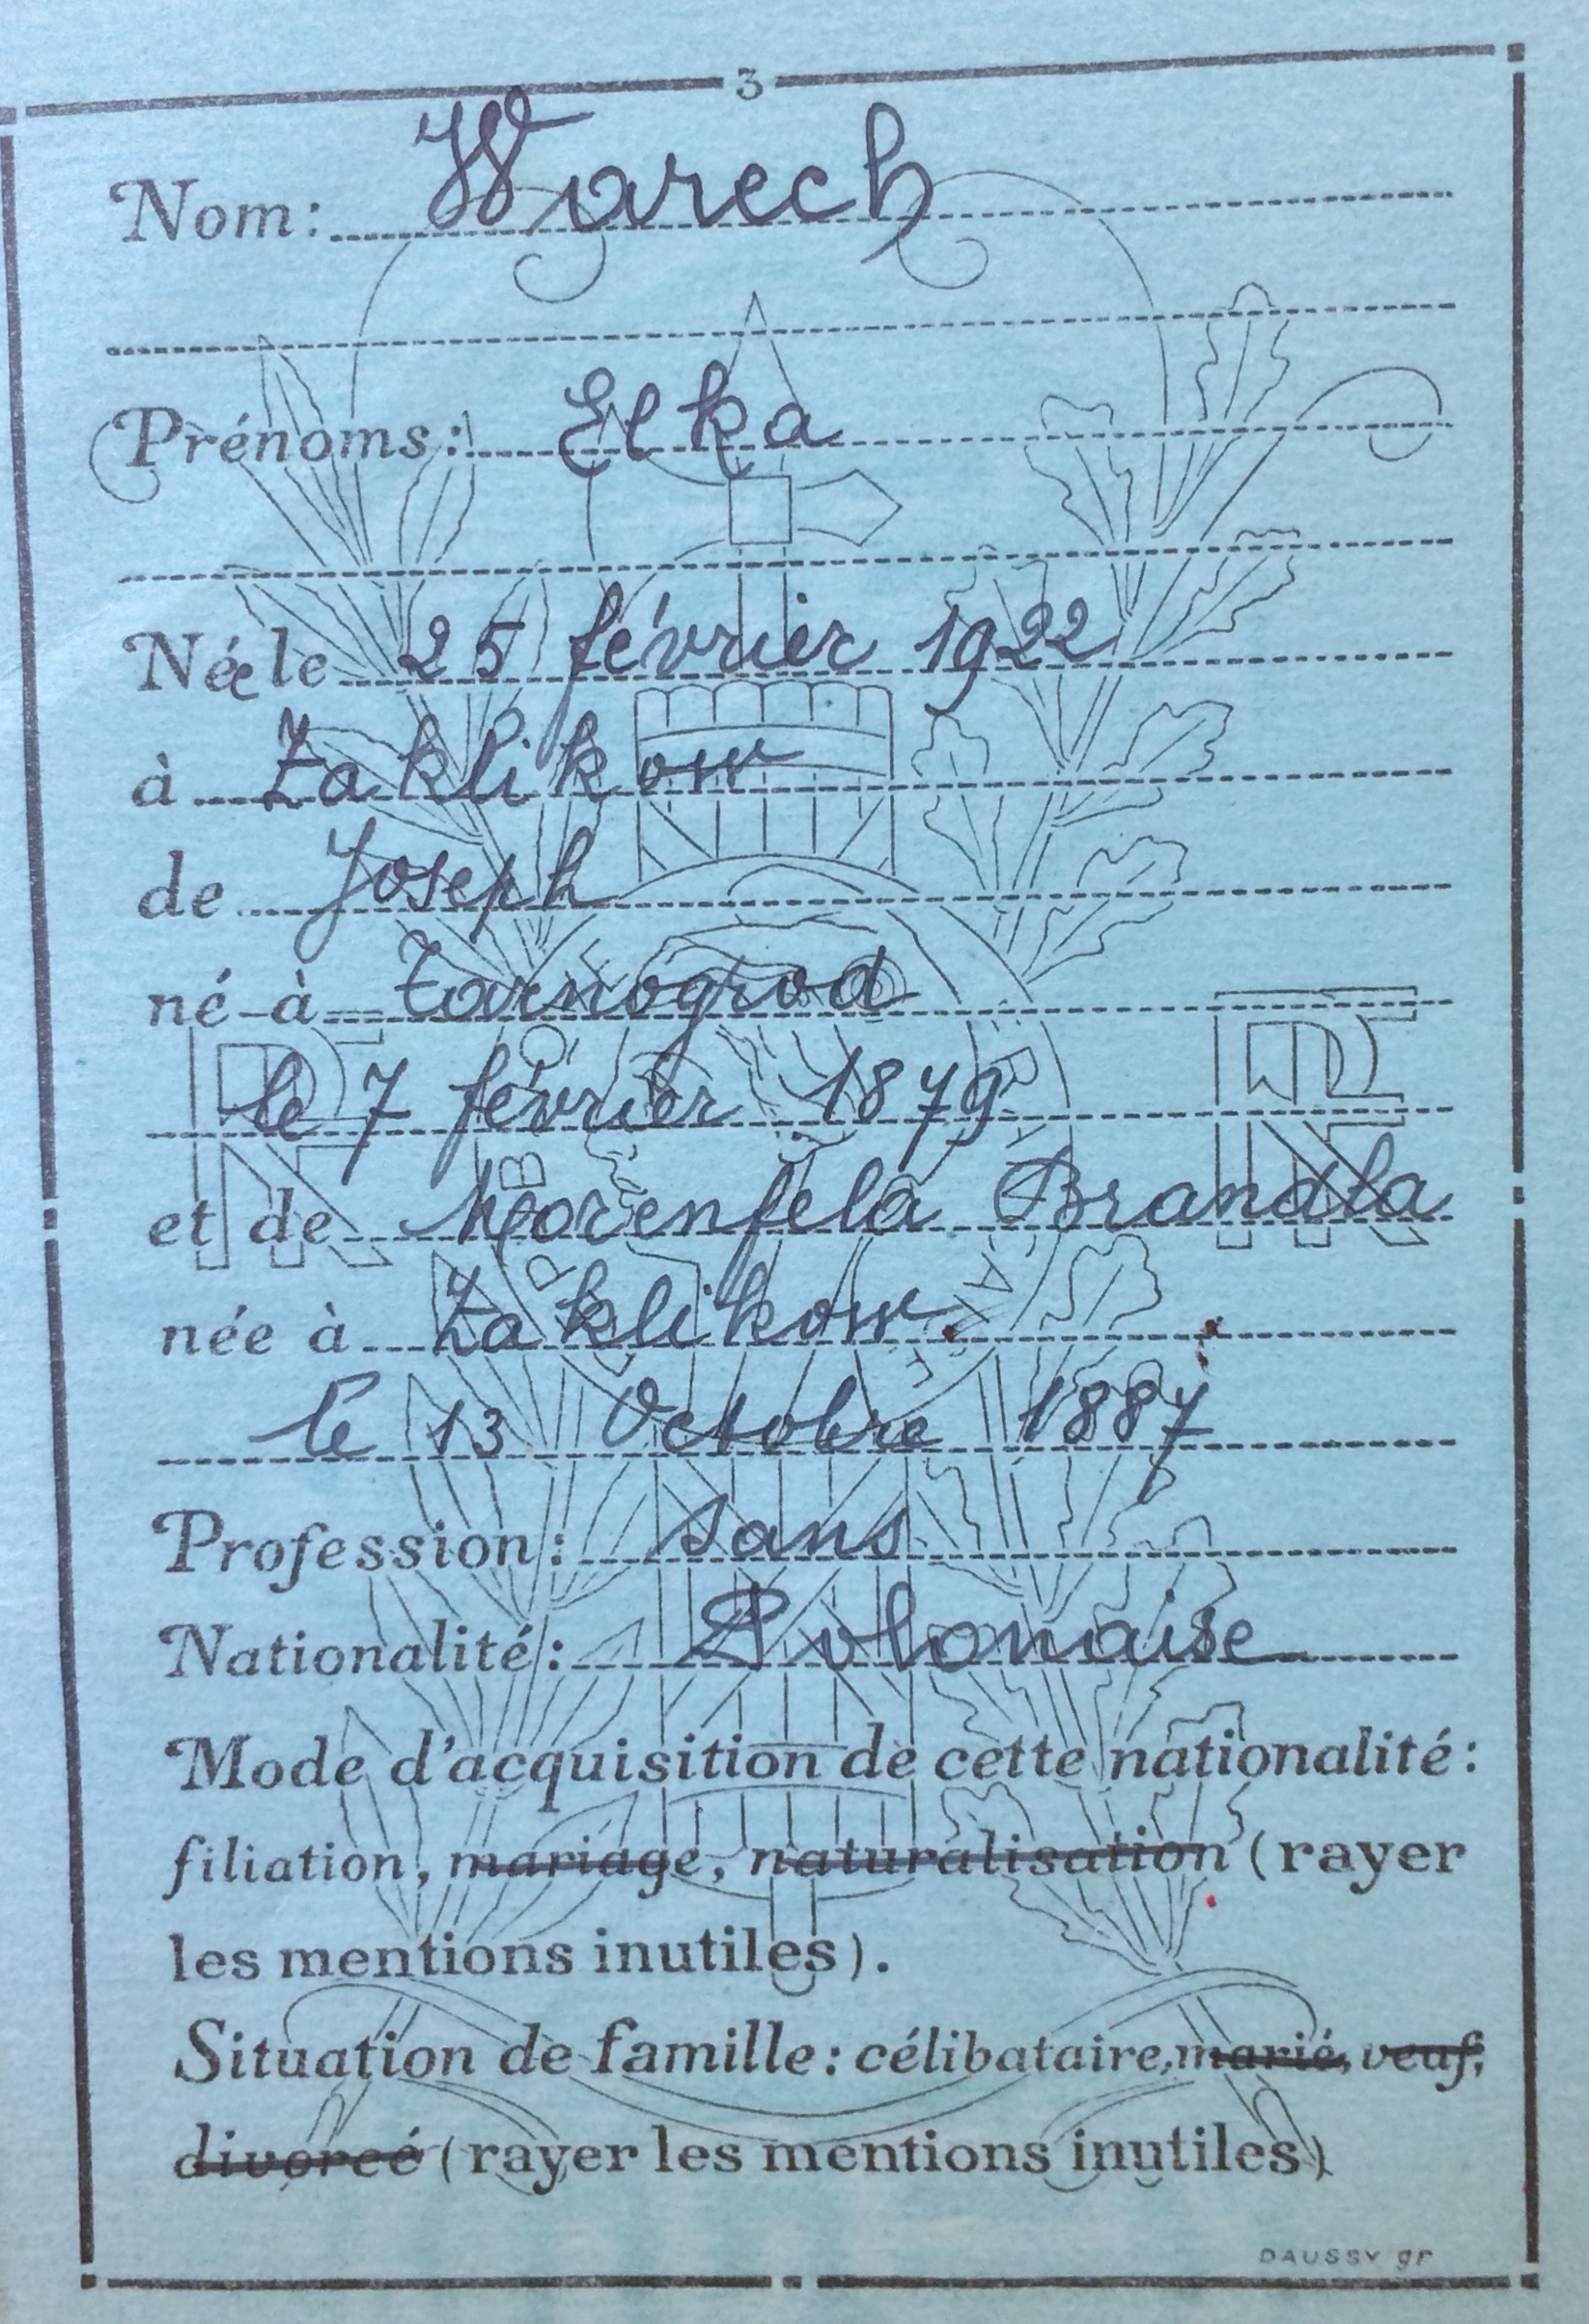 3
Nom: Warech
Prénoms: Elka
Née le 25 février 1922
à Zaklikow
de Joseph
né à Tarnogrod
le 7 février 1879
et de Brandla
née à Zaklikow.
le 13 Octobre 1887
Profession: sans
Nationalité: Polonaise
Mode d'acquisition de cette nationalité:
filiation, mariage, naturalisation (rayer
les mentions inutiles).
Situation de famille: célibataire, marié, veuf,
divorcé (rayer les mentions inutiles)
DAUSSY gr